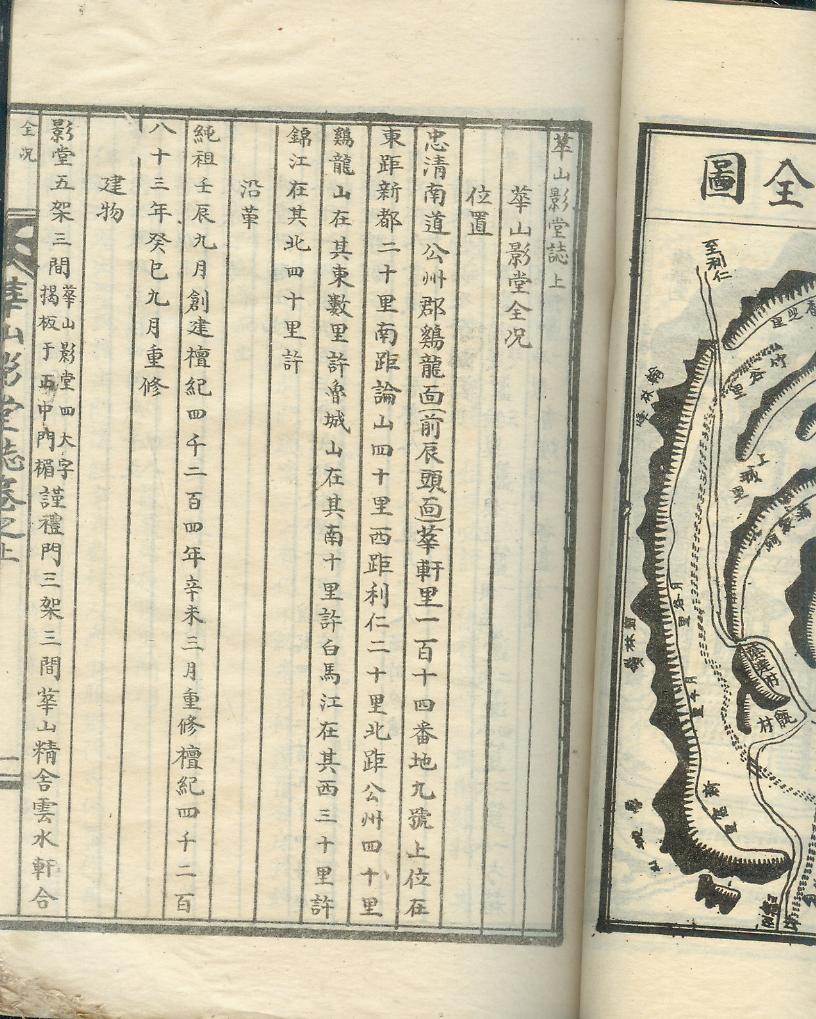 全圖
至利仁
竹谷里
上城里
月谷里
華山影堂誌上
華山影堂全况
位置
忠清南道公州郡鷄龍面(前辰頭面)華軒里一百十四番地九號上位在
東距新都二十里南距論山四十里西距利仁二十里北距公州四十里
鷄龍山在其東數里許魯城山在其南十里許白馬江在其西三十里許
錦江在其北四十里許
沿革
純祖壬辰九月創建檀紀四千二百四年辛未三月重修檀紀四千二百
八十三年癸巳九月重修
建物
影堂五架三間華山影堂四大字揭板于正中門楣謹禮門三架三間華山精舍雲水軒合
全况
華山影堂誌卷之上
一